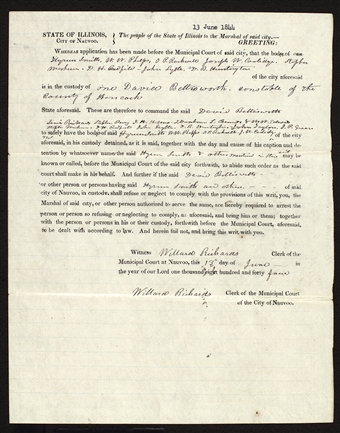 13 June 1844
STATE OF ILLINOIS, } The people of the State of Illinois to the Marshal of said city,
CITY OF NAUVOO. GREETING:
WHEREAS application has been made before the Municipal Court of said city, that the bodies of one
Hyrum Smith, W W Phelps, O P Rockwell Joseph W Coolidge Stephen
Markam. D. H. Redfield John Lytle, D. B. Huntington of the city aforesaid
is in the custody of one David Bettisworth. constable of the
County of Hancock
State aforesaid. These are therefore to command the said David Bettisworth
Levi Richards Stephen Perry
to safely have the bodies of said
aforesaid, in his custody detained, as it is said, together with the day and cause of his caption and de-
tention by whatsoever name the said Hyrum Smith & others may be
known or called, before the Municipal Court of the said city forthwith, to abide such order as the said
court shall make in his behalf. And further if the said David Bettisworth
or other person or persons having said Hyrum Smith and others of said
city of Nauvoo, in custody, shall refuse or neglect to comply with the provisions of this writ, you, the
Marshal of said city, or other person authorized to serve the same, are hereby required to arrest the
person or persons so refusing or neglecting to comply, as aforesaid, and bring him or them; together
with the person or persons in his or their custody, forthwith before the Municipal Court, aforesaid,
to be dealt with according to law. And herein fail not, and bring this writ with you.
WITNESS Willard Richards Clerk of the
Municipal Court at NAUVOO, this 13th day of June in
the year of our Lord one thousand eight hundred and forty four
Willard Richards Clerk of the Municipal Court
of the City of NAUVOO.